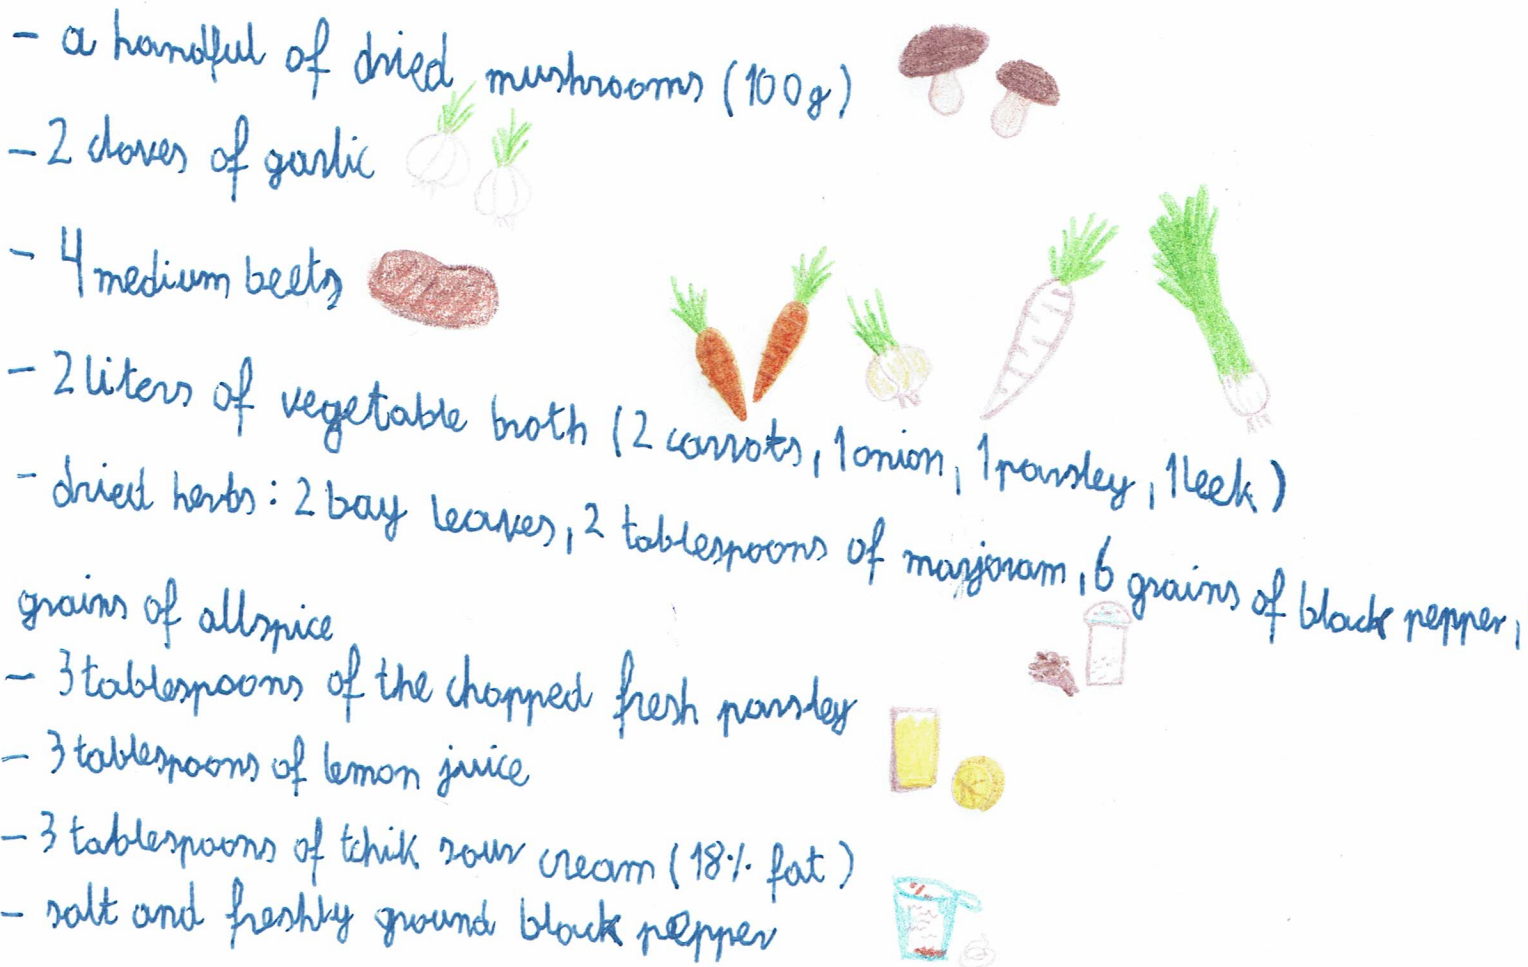 - a handful of dried mushrooms (100g)
- 2 cloves of garlic
- 4 medium beets
- 2 liters of vegetable broth (2 carrots, 1 onion, 1 parsley, 1 leek)
- dried herbs: 2 bay leaves, 2 tablespoons of marjoram, 6 grains of black pepper,
grains of allspice
- 3 tablespoons of the chopped fresh parsley
- 3 tablespoons of lemon juice
- 3 tablespoons of tchik sour cream (18% fat)
- salt and freshly ground black pepper